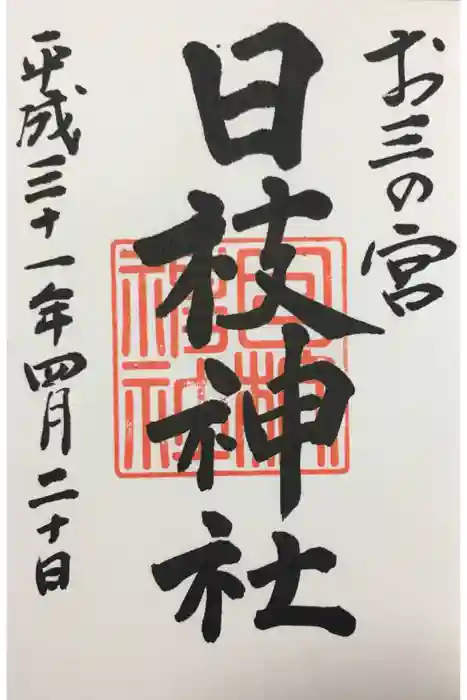 お三の宮
日枝神社
日枝
神社
平成三十一年四月二十日